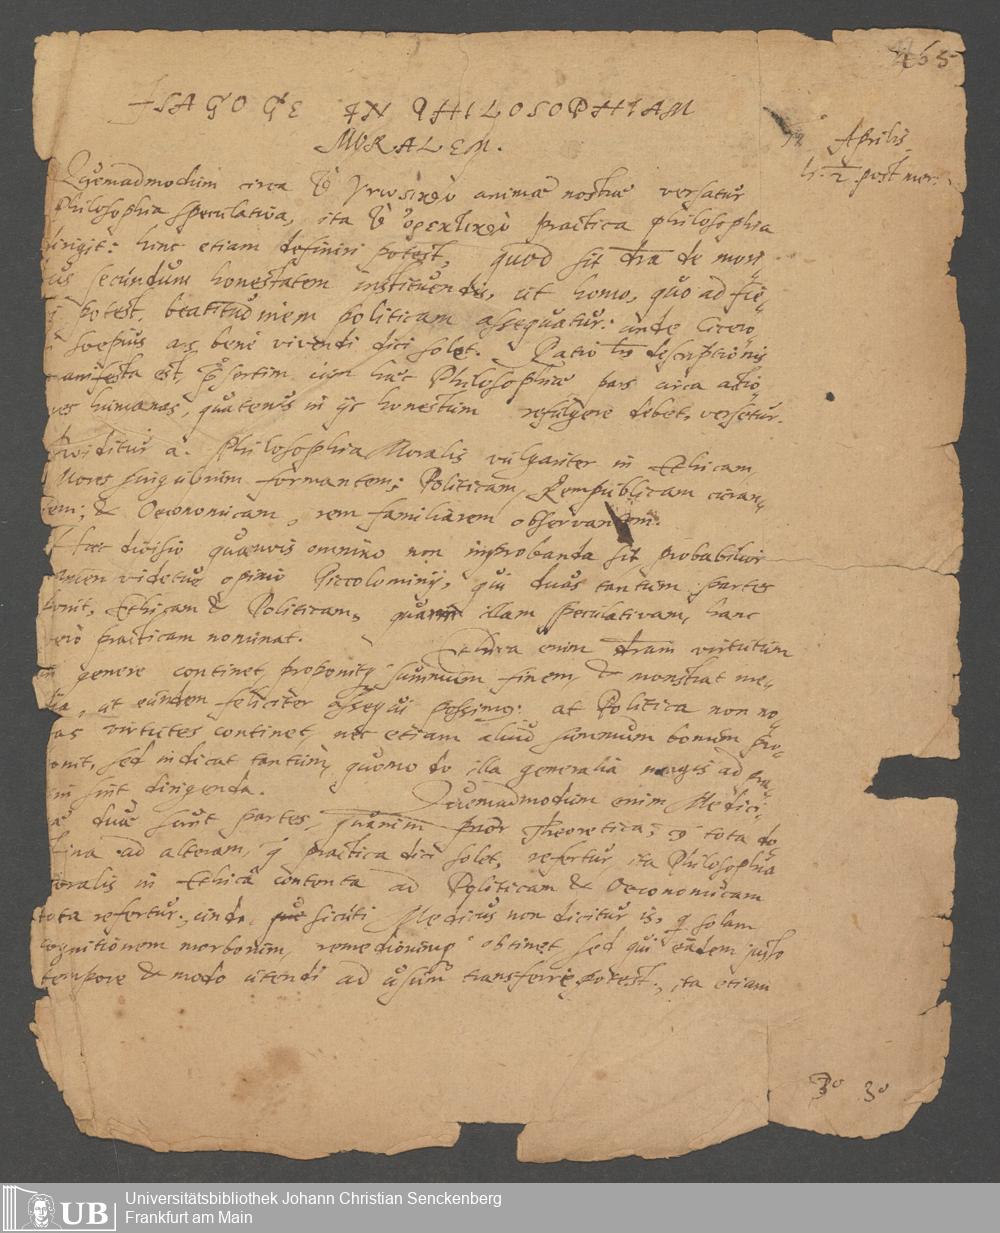 465
ISAGOGE IN PHILOSOPHIAM
MORALEM.
Aprilis
h. 2 post mer.
Quemadmodum circa τὸ γνωστικὸν animæ nostræ versatur
Philosophia speculativa, ita τὸ ὀρεκτικὸν practica philosophia
dirigit: hinc etiam definiri potest, quod sit dria de mori
bus secundum honestatem instituendis, ut homo, quo ad fie
ri potest, beatitudinem politicam assequatur: unde Cicero
sæpius ars bene vivendi dici solet. Ratio descriptionis
manifesta est, præsertim cum hæc Philosophiæ pars circa actio
nes humanas, quatenus in ijs honestum refulgere debet, versetur.
Dividitur a. Philosophia Moralis vulgariter in Ethicam,
Mores singulorum formantem; Politicam, Rempublicam curan
tem; & Oeconomicam, rem familiarem observantem.
Hæc divisio quamvis omnino non improbanda sit probabilior
tamen videtur opinio Piccolominij, qui duas tantum partes
ponit, Ethicam & Politicam, quarum illam speculativam, hanc
vero practicam nominat. Ethica enim dram virtutum
in genere continet, proponitq summum finem, & monstrat me
dia, ut eundem feliciter assequi possimus: at Politica non no
vas virtutes continet, nec etiam aliud summum bonum pro
ponit, sed indicat tantum, quomodo illa generalia magis ad pra
xin sint dirigenda. Quemadmodum enim Medici
næ duæ sunt partes, quarum prior Theoretica, tota do
ctrina ad alteram, q practica dici solet, refertur, ita Philosophia
Moralis in Ethica contenta ad Politicam & Oeconomicam
tota refertur: unde sicuti Medicus non dicitur is, q solam
cognitionem morborum, remediorumq obtinet, sed qui eadem justo
tempore & modo utendi ad usum transferre potest, ita etiam
3º 3º
UB
Universitätsbibliothek Johann Christian Senckenberg
Frankfurt am Main